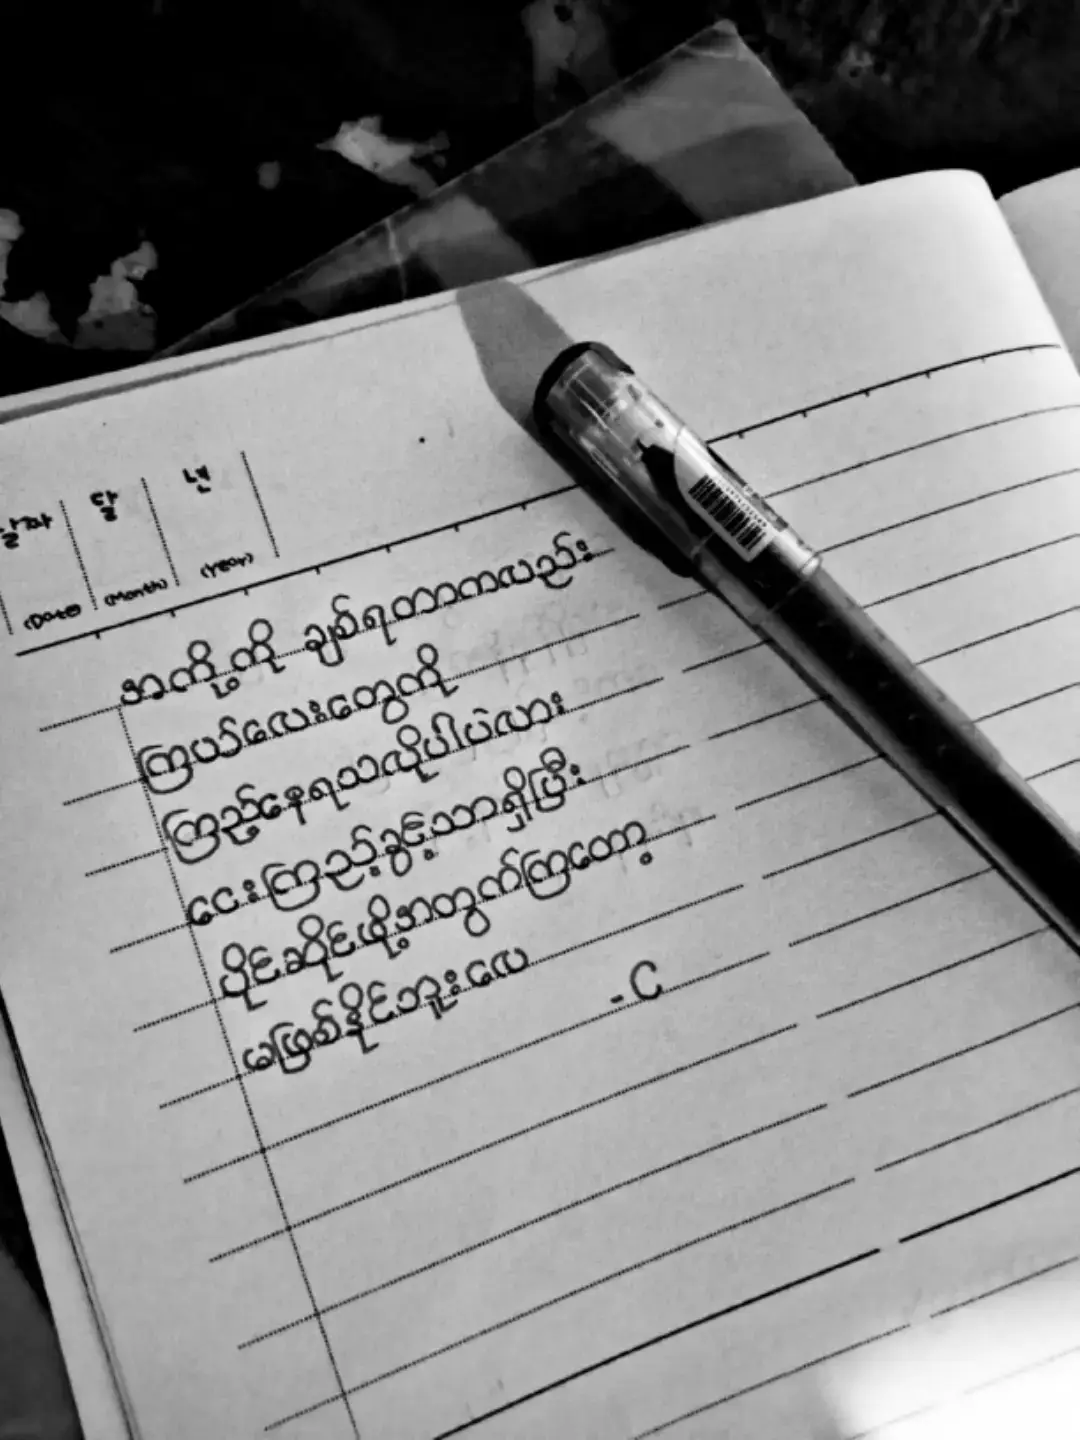 날짜 달 년
(Date) (Month) (Year)
အကို့ကို ချစ်ရတာကလည်း
ကြယ်လေးတွေကို
ကြည့်နေရသလိုပါပဲလား
ငေးကြည့်ခွင့်သာရှိပြီး
ပိုင်ဆိုင်ဖို့အတွက်ကြတော့
မဖြစ်နိုင်ဘူးလေ
-C